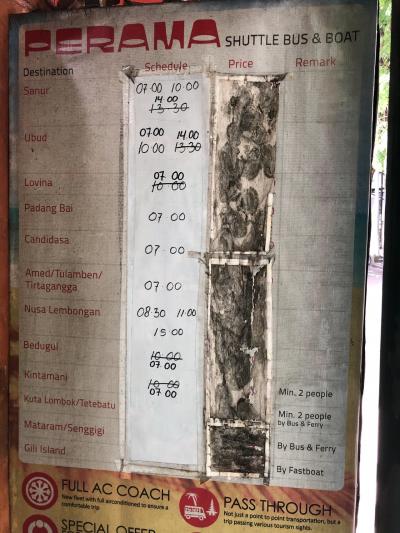 PERAMA SHUTTLE BUS & BOAT
Destination Schedule Price Remark
Sanur 07.00 10.00
14.00
13 30
Ubud 07.00 14.00
10.00 13.30
Lovina 07 00
10 00
Padang Bai 07.00
Candidasa 07.00
Amed/Tulamben/
Tirtagangga 07.00
Nusa Lembongan 08.30 11.00
15.00
Bedugul 10.00
07.00
Kintamani 10.00
07.00
Kuta Lombok/Tetebatu Min. 2 people
Mataram/Senggigi Min. 2 people
by Bus & Ferry
Gili Island By Bus & Ferry
By Fastboat
FULL AC COACH
New fleet with full airconditioned to ensure a
comfortable trip
PASS THROUGH
Not just a point to point transportation, but a
trip passing various tourism sights.
SPECIAL OFFER